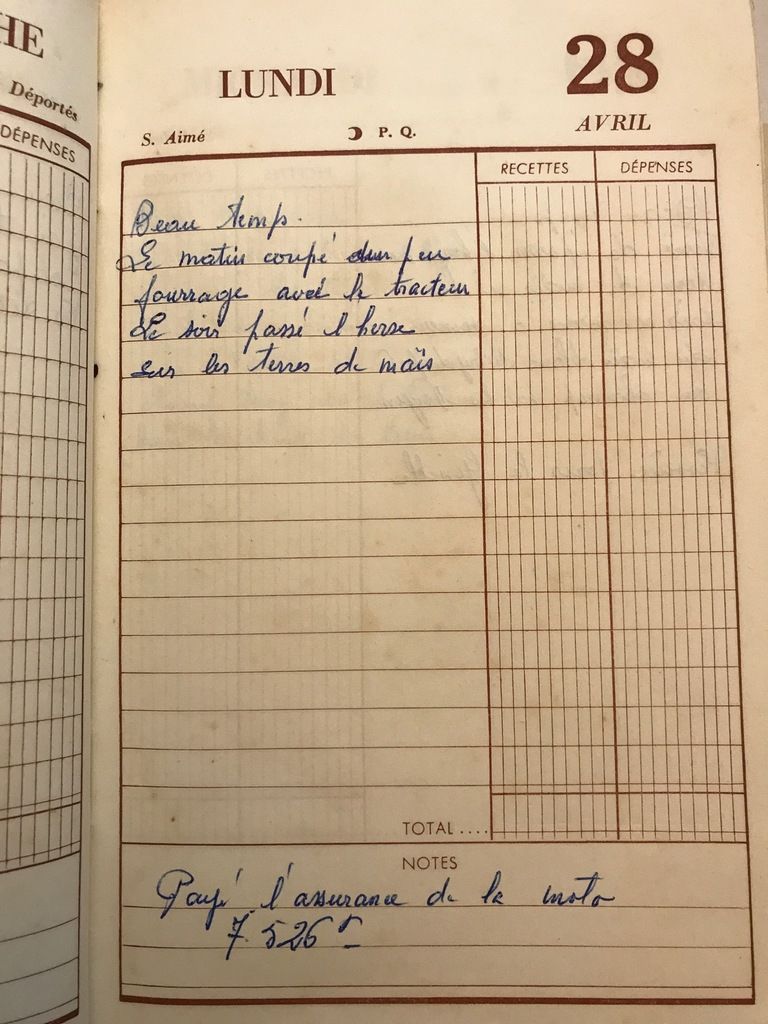 HE
Déportés
DÉPENSES
LUNDI
28
AVRIL
S. Aimé
P. Q.
RECETTES
DÉPENSES
Beau temps.
Le matin coupé un peu
fourrage avec le tracteur
Le soir passé l herse
sur les terres de maïs
TOTAL ....
NOTES
Payé l'assurance de la moto
7.526 F